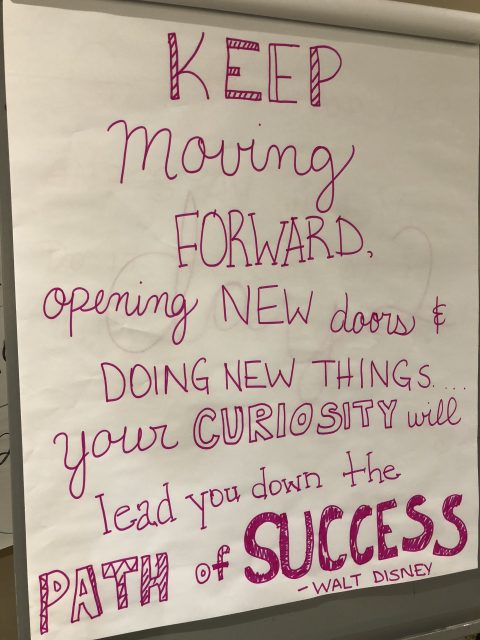 KEEP
Moving
FORWARD,
opening NEW doors &
DOING NEW THINGS....
your CURIOSITY will
lead you down the
PATH of SUCCESS
- WALT DISNEY